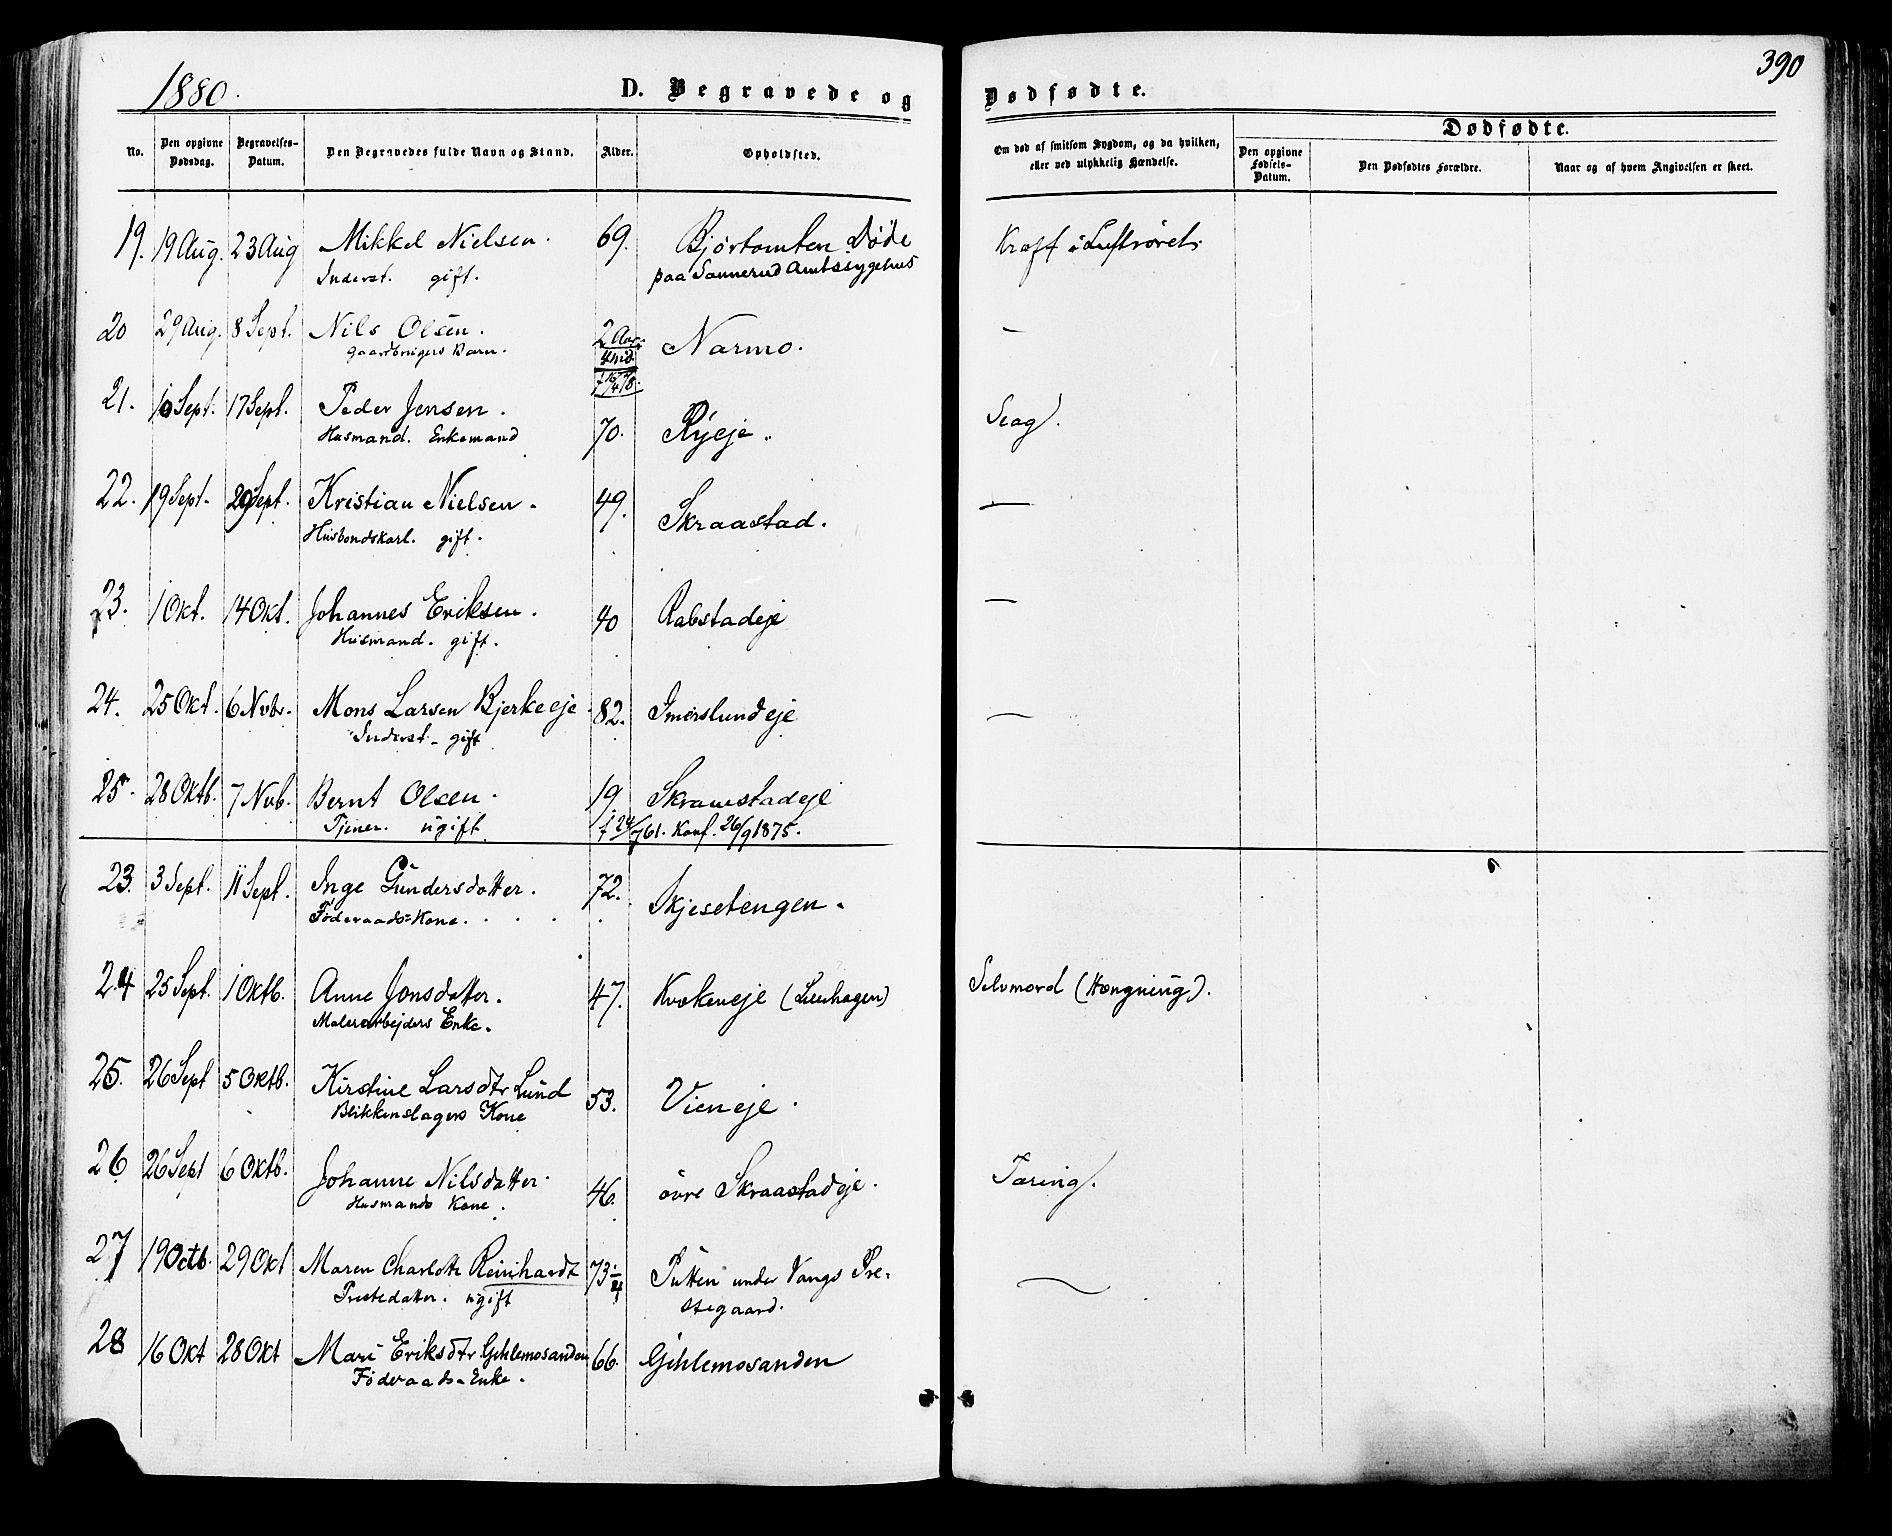 1880.
D. Begravede og Dødfødte.
390
No.
Den opgivne Dødsdag.
Begravelses-Datum.
Den Begravedes fulde Navn og Stand.
Alder.
Opholdsted.
Om død af smitsom Sygdom, og da hvilken, eller ved ulykkelig Hændelse.
Dødfødte.
Den opgivne Fødsels-Datum.
Den Dødfødtes Forældre.
Naar og af hvem Angivelsen er skeet.
19. 19 Aug. 23 Aug Mikkel Nielsen. 69. Bjørtomten Døde
Inderst. gift. paa Sannerud Amtssygehus
Kræft i Luftrøret.
20 29 Aug. 8 Sept. Nils Olsen. 2 Aar. Narmo. —
Gaardbrugers Barn. 4 md.
21. 10 Sept. 17 Sept. Peder Jensen. 70. Ryeje. Slag.
Husmand. Enkemand
22. 19 Sept. 29 Sept. Kristian Nielsen. 49. Skraastad. —
Husbondskarl. gift.
23. 1 Okt. 14 Okt. Johannes Eriksen. 40 Rabstadeje —
Husmand. gift.
24. 25 Okt. 6 Nvbr. Mons Larsen Bjerkeeje 82. Imerslundeje —
Inderst - gift
25. 28 Oktb. 7 Nvb. Bernt Olsen. 19. Skramstadeje
Tjener. ugift f. 24/7 61. Konf. 26/9 1875.
23. 3 Sept. 11 Sept. Inge Gundersdatter. 72. Skjesetengen.
Føderaads=Kone.
24 25 Sept. 1 Oktb. Anne Jonsdatter. 47. Kvokeneje (Lienhagen) Selvmord (Hængning).
Malerarbejders Enke.
25. 26 Sept 5 Oktb. Kirstine Larsdtr Lund 53. Vieneje.
Blikkenslagers Kone
26 26 Sept 6 Oktb. Johanne Nilsdatter. 46. øvre Skraastadeje. Tæring.
Husmands Kone.
27 19 Octb. 29 Okt Maren Charlotte Reinhardt 73 1/4 Putten under Vangs Pre-
Prestedatter. ugift stegaard.
—
28 16 Okt 28 Okt Mari Eriksdtr Gihlemosanden 66. Gihlemosanden
Føderaads-Enke.